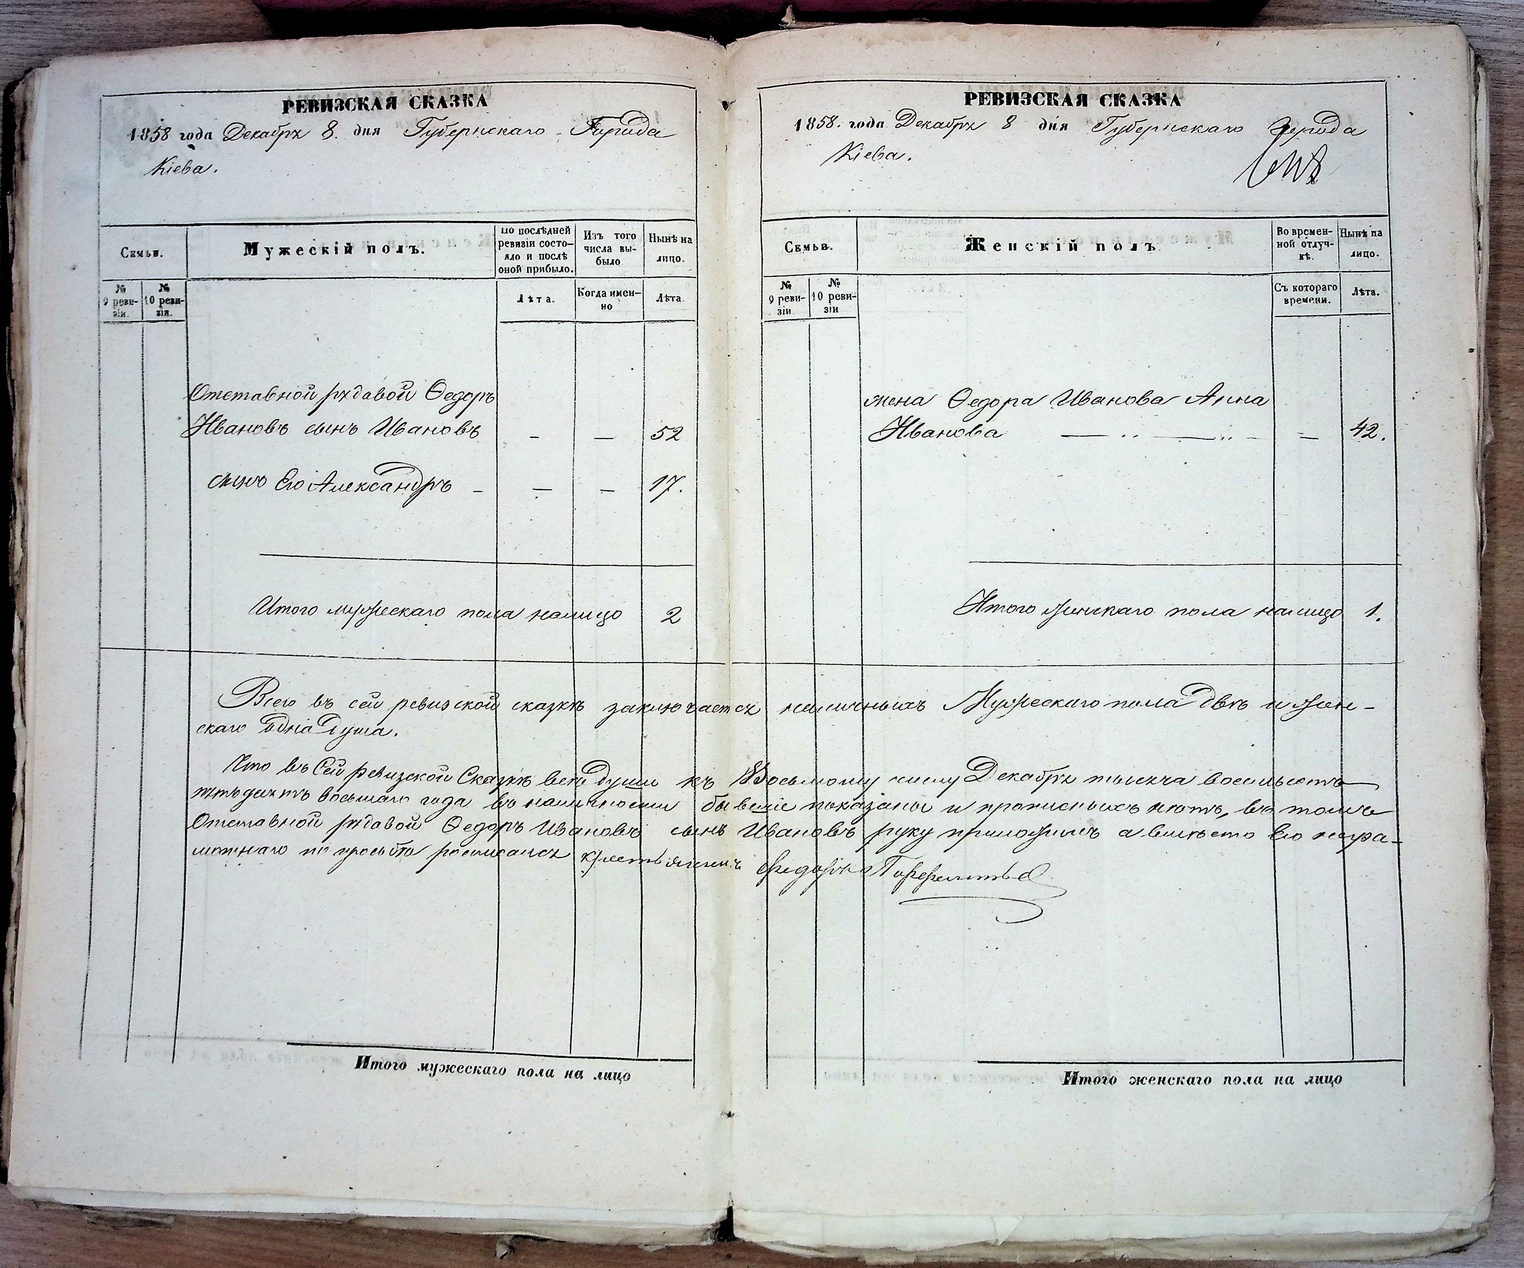 РЕВИЗСКАЯ СКАЗКА
1858 года Декабря 8. дня Губернскаго Города
Кіева.
Семьи.
Мужескій полъ.
По послѣдней ревизіи состояло и послѣ оной прибыло.
Изъ того числа выбыло
Нынѣ на лицо.
№ 9 ревизіи.
№ 10 ревизія.
Лѣта.
Когда именно
Лѣта.
Отставной рядовой Ѳедоръ
Ивановъ сынъ Ивановъ – – 52
сынъ Его Александръ – – – 17.
Итого мужескаго пола налицо 2
РЕВИЗСКАЯ СКАЗКА
1858. года Декабря 8 дня Губернскаго Города
Кіева.
Семьи.
Женскій полъ.
Во временной отлучкѣ.
Нынѣ на лицо.
№ 9 ревизіи.
№ 10 ревизіи
Съ котораго времени.
Лѣта.
жена Ѳедора Иванова Анна
Иванова – 42.
Итого женскаго пола налицо 1.
Всего въ сей ревизской сказкѣ заключается наличныхъ Мужескаго пола двѣ и жен-
скаго одна душа.
Что въ Сей ревизской Сказкѣ всѣ души къ Восьмому числу Декабря тысяча восемьсотъ
пятьдесятъ восьмаго года въ наличности бывшіе показаны и прописныхъ нѣтъ, въ томъ
Отставной рядовой Ѳедоръ Ивановъ сынъ Ивановъ руку приложилъ а вмѣсто Его негра-
мотнаго по прозьбѣ росписался крестьянинъ Федоръ
Итого мужескаго пола на лицо
Итого женскаго пола на лицо